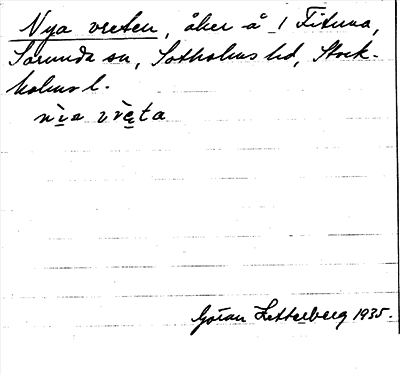 Nya vreten, åker å 1 Fituna,
Sorunda sn, Sotholms hd, Stock-
holms l.
nìa vrèta
Göran Zetterberg 1935.